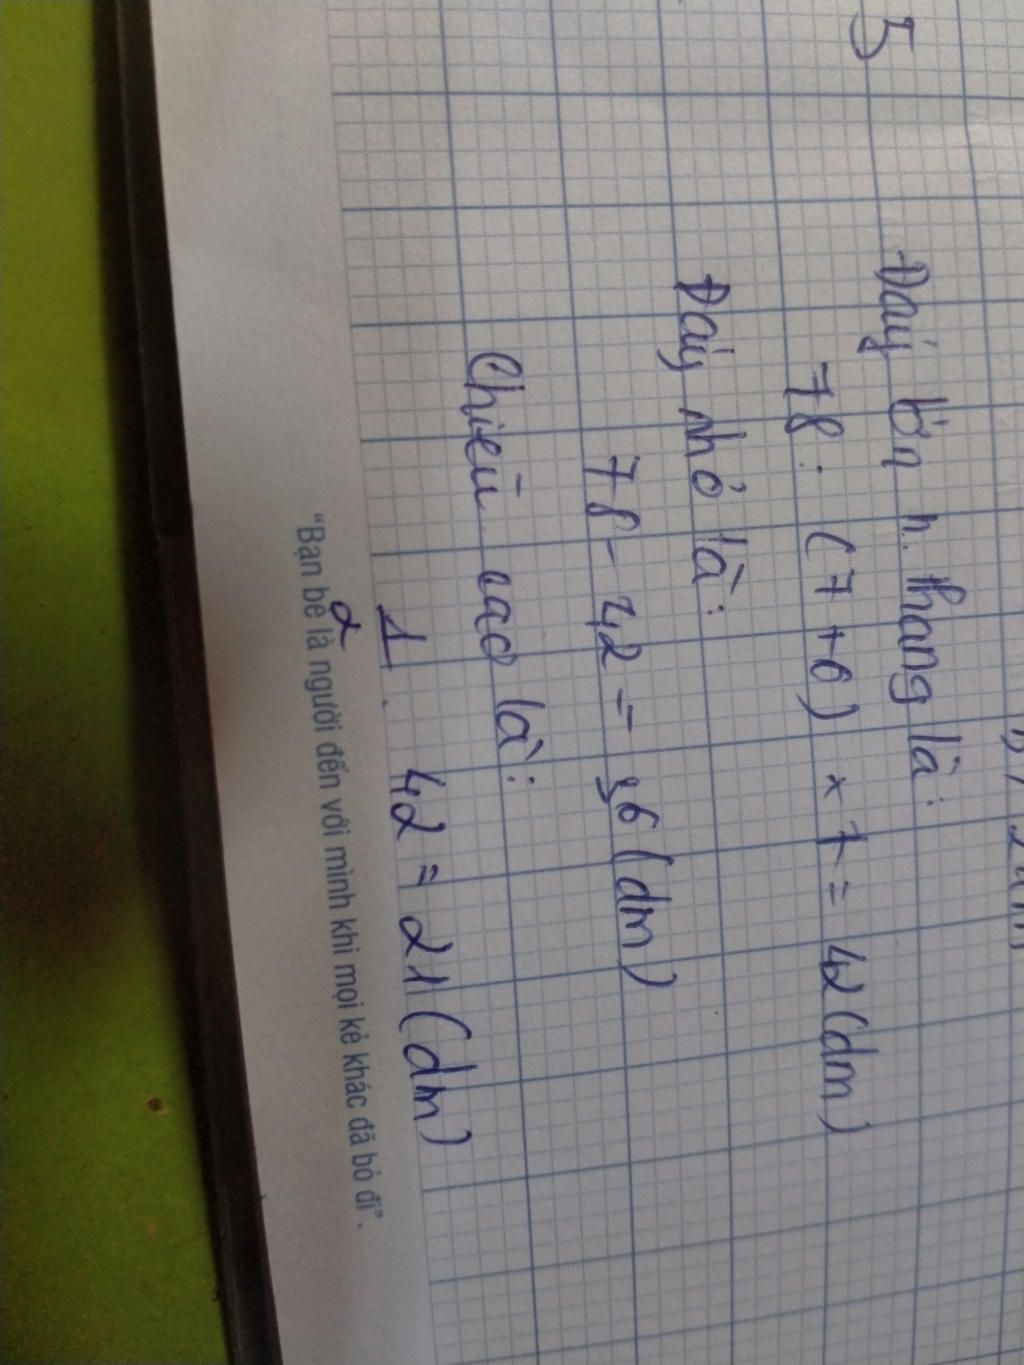 5
Đáy lớn h. thang là:
78 : (7 + 6) x 7 = 42 (dm)
Đáy nhỏ là:
78 - 42 = 36 (dm)
Chiều cao là:
1/2 . 42 = 21 (dm)
"Bạn bè là người đến với mình khi mọi kẻ khác đã bỏ đi".